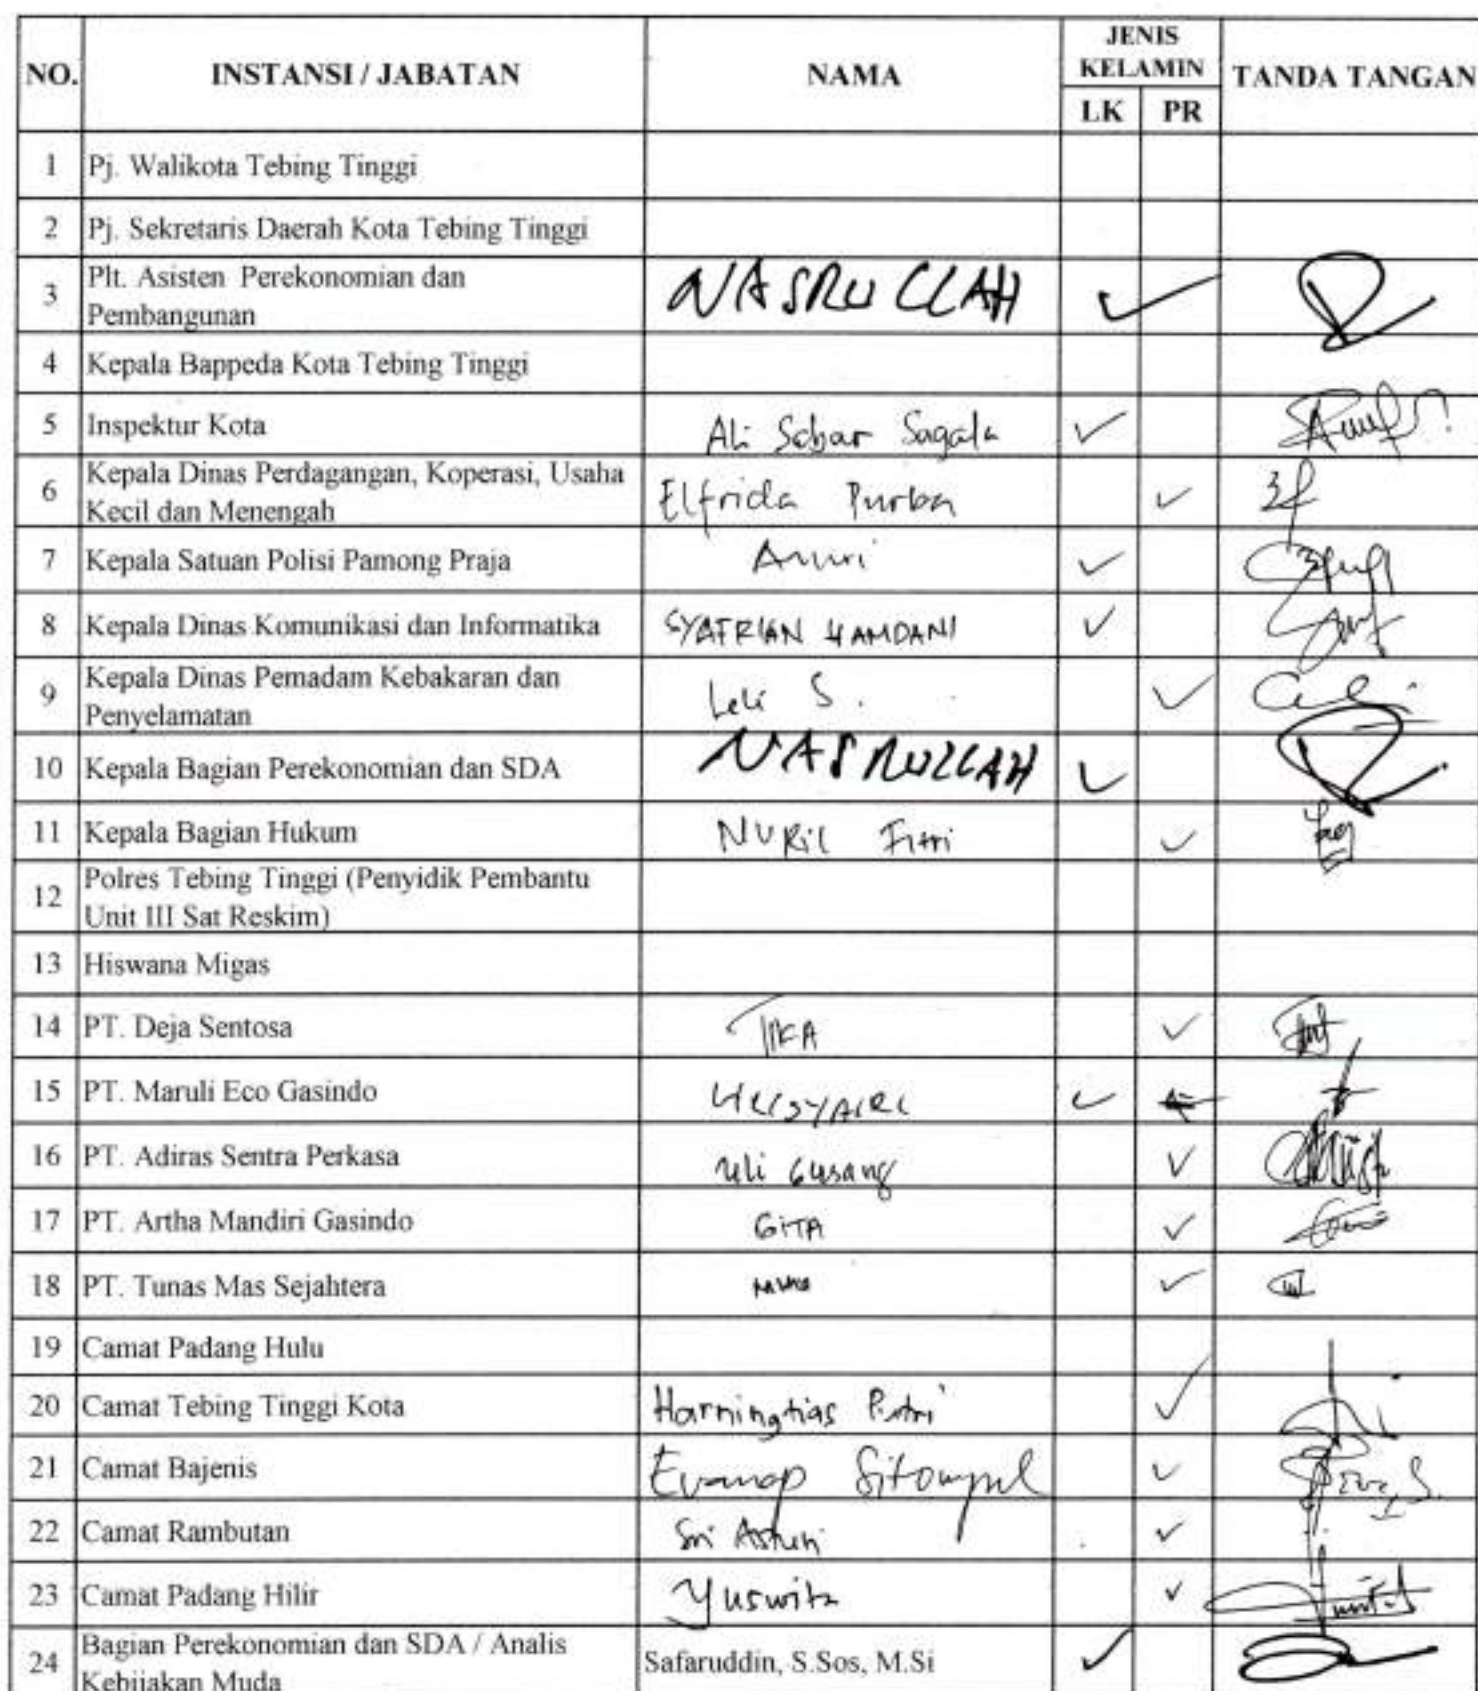 NO. INSTANSI / JABATAN NAMA JENIS KELAMIN TANDA TANGAN
LK PR
1 Pj. Walikota Tebing Tinggi
2 Pj. Sekretaris Daerah Kota Tebing Tinggi
3 Plt. Asisten Perekonomian dan Pembangunan NASRULLAH ✓
4 Kepala Bappeda Kota Tebing Tinggi
5 Inspektur Kota Ali Sabar Sagala ✓
6 Kepala Dinas Perdagangan, Koperasi, Usaha Kecil dan Menengah Elfrida Purba ✓
7 Kepala Satuan Polisi Pamong Praja ✓
8 Kepala Dinas Komunikasi dan Informatika SYAFRIAN HAMDANI ✓
9 Kepala Dinas Pemadam Kebakaran dan Penyelamatan Leli S. ✓
10 Kepala Bagian Perekonomian dan SDA NASRULLAH ✓
11 Kepala Bagian Hukum NURil Fitri ✓
12 Polres Tebing Tinggi (Penyidik Pembantu Unit III Sat Reskim)
13 Hiswana Migas
14 PT. Deja Sentosa TIKA ✓
15 PT. Maruli Eco Gasindo ✓
16 PT. Adiras Sentra Perkasa Uli ✓
17 PT. Artha Mandiri Gasindo GITA ✓
18 PT. Tunas Mas Sejahtera ✓
19 Camat Padang Hulu
20 Camat Tebing Tinggi Kota Harningtias Putri ✓
21 Camat Bajenis Sitompul ✓
22 Camat Rambutan Sri ✓
23 Camat Padang Hilir Yuswita ✓
24 Bagian Perekonomian dan SDA / Analis Kebijakan Muda Safaruddin, S.Sos, M.Si ✓